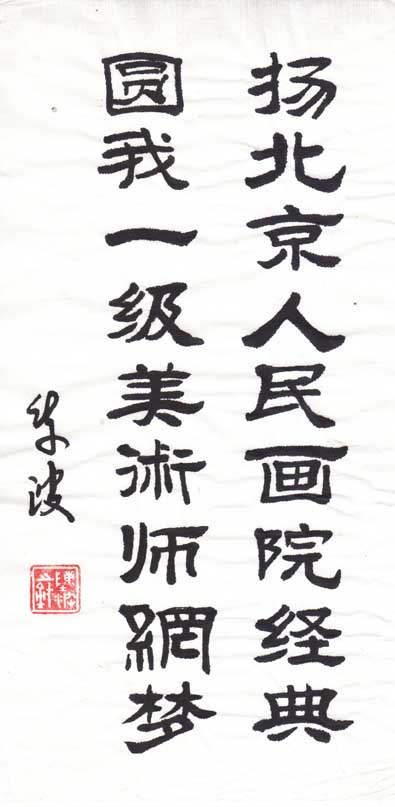 扬北京人民画院经典
圆我一级美術师網梦